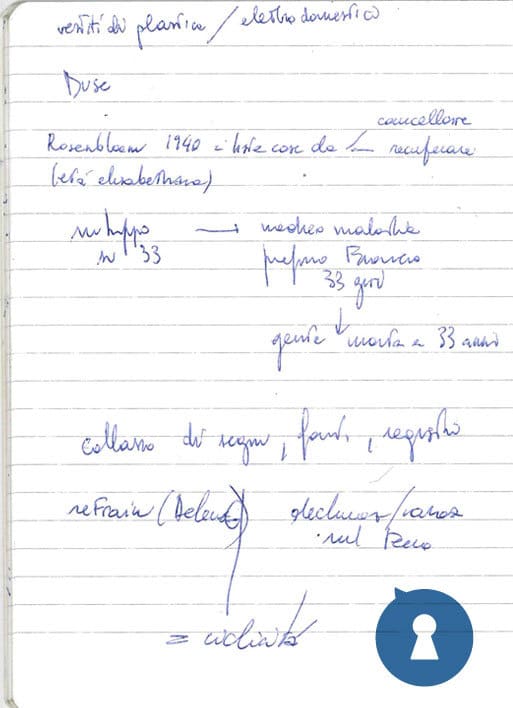 vestiti di plastica / elettrodomestico
Duse
cancellare
Rosenbloom 1940 = liste cose da recuperare
(età elisabettiana)
sviluppo → medico malattia
su 33
33 giri
gente morta a 33 anni
collasso di segni, fonti, registri
refrain (Deleuze)
sul
= ciclicità